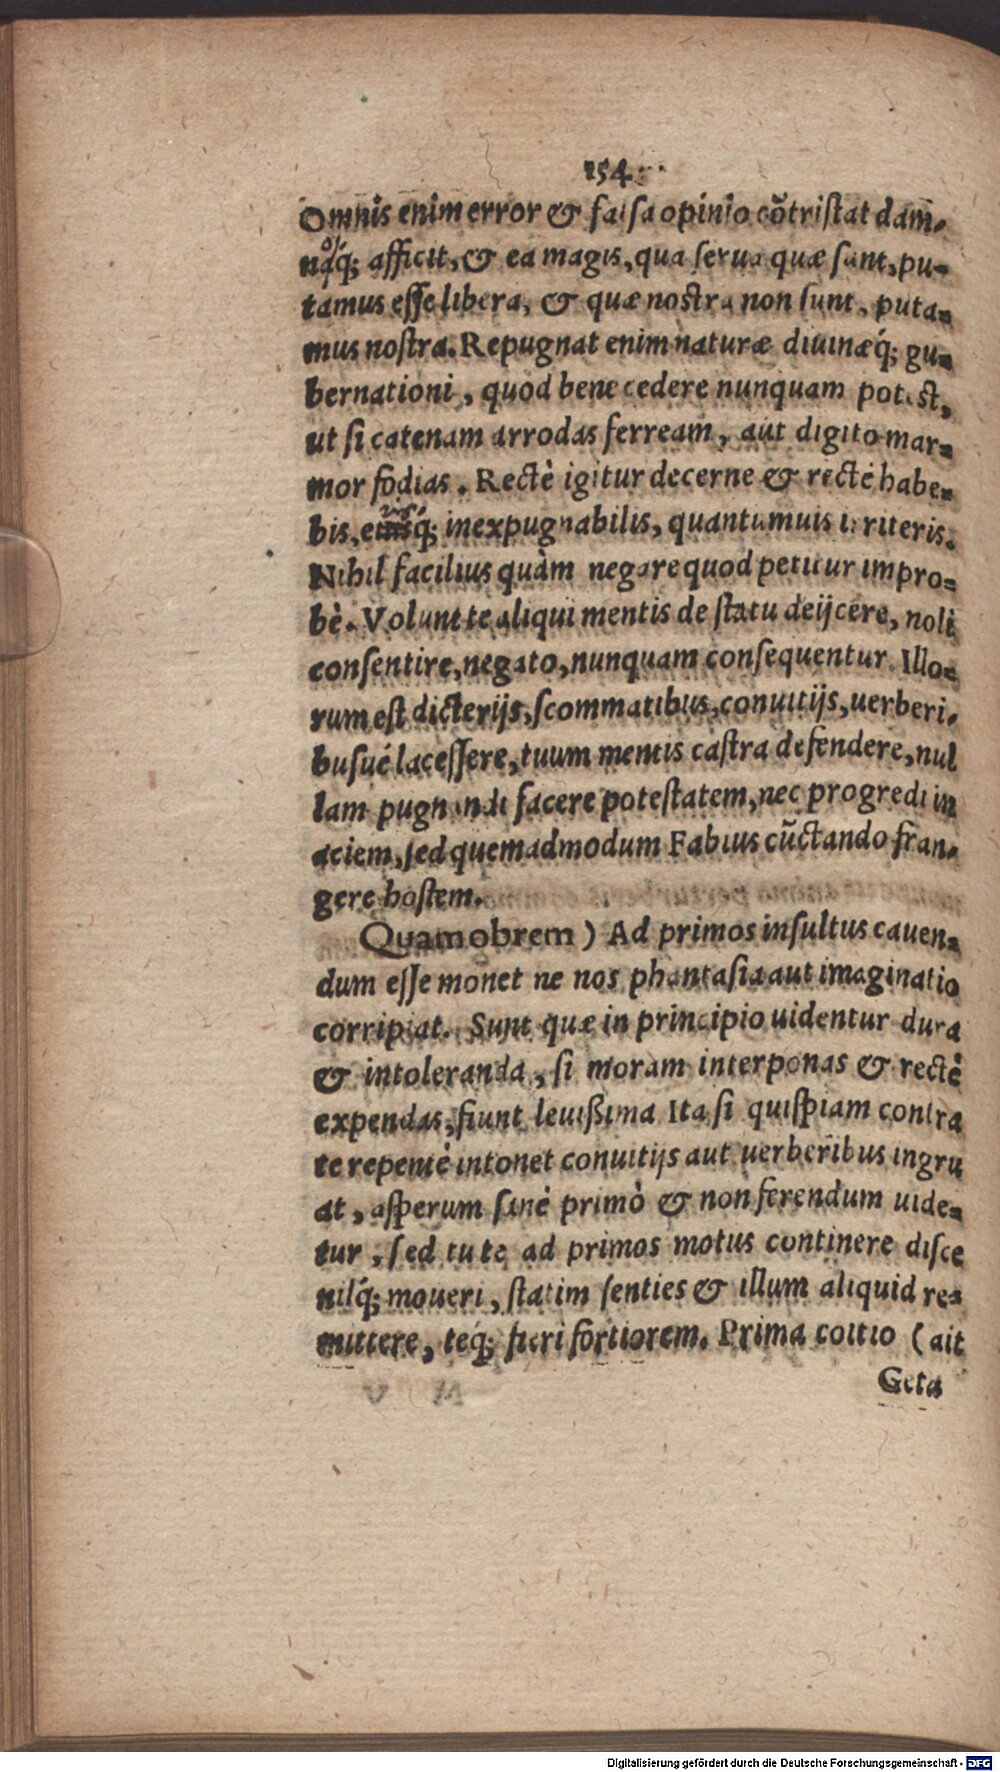 154
Omnis enim error & falsa opinio cõtristat dam-
noq́; afficit, & ea magis, qua serua quæ sunt, pu-
tamus esse libera, & quæ nostra non sunt, puta-
mus nostra. Repugnat enim naturæ diuinæq́; gu-
bernationi, quod bene cedere nunquam potest,
ut si catenam arrodas ferream, aut digito mar-
mor fodias. Rectè igitur decerne & rectè habe-
bis, erisq́; inexpugnabilis, quantumuis irriteris.
Nihil facilius quàm negare quod petitur impro-
bè. Volunt te aliqui mentis de statu deijcere, noli
consentire, negato, nunquam consequentur. Illo-
rum est dicterijs, scommatibus, conuitijs, uerberi-
busué lacessere, tuum mentis castra defendere, nul
lam pugnandi facere potestatem, nec progredi in
aciem, sed quemadmodum Fabius cũctando fran-
gere hostem.
Quamobrem ) Ad primos insultus cauen-
dum esse monet ne nos phantasia aut imaginatio
corripiat. Sunt quæ in principio uidentur dura
& intoleranda, si moram interponas & rectè
expendas, fiunt leuißima Ita si quispiam contra
te repentè intonet conuitijs aut uerberibus ingru
at, asperum sanè primò & non ferendum uide-
tur, sed tu te ad primos motus continere disce
nilq́; moueri, statim senties & illum aliquid re-
mittere, teq́; fieri fortiorem. Prima coitio ( ait
Geta
Digitalisierung gefördert durch die Deutsche Forschungsgemeinschaft - DFG